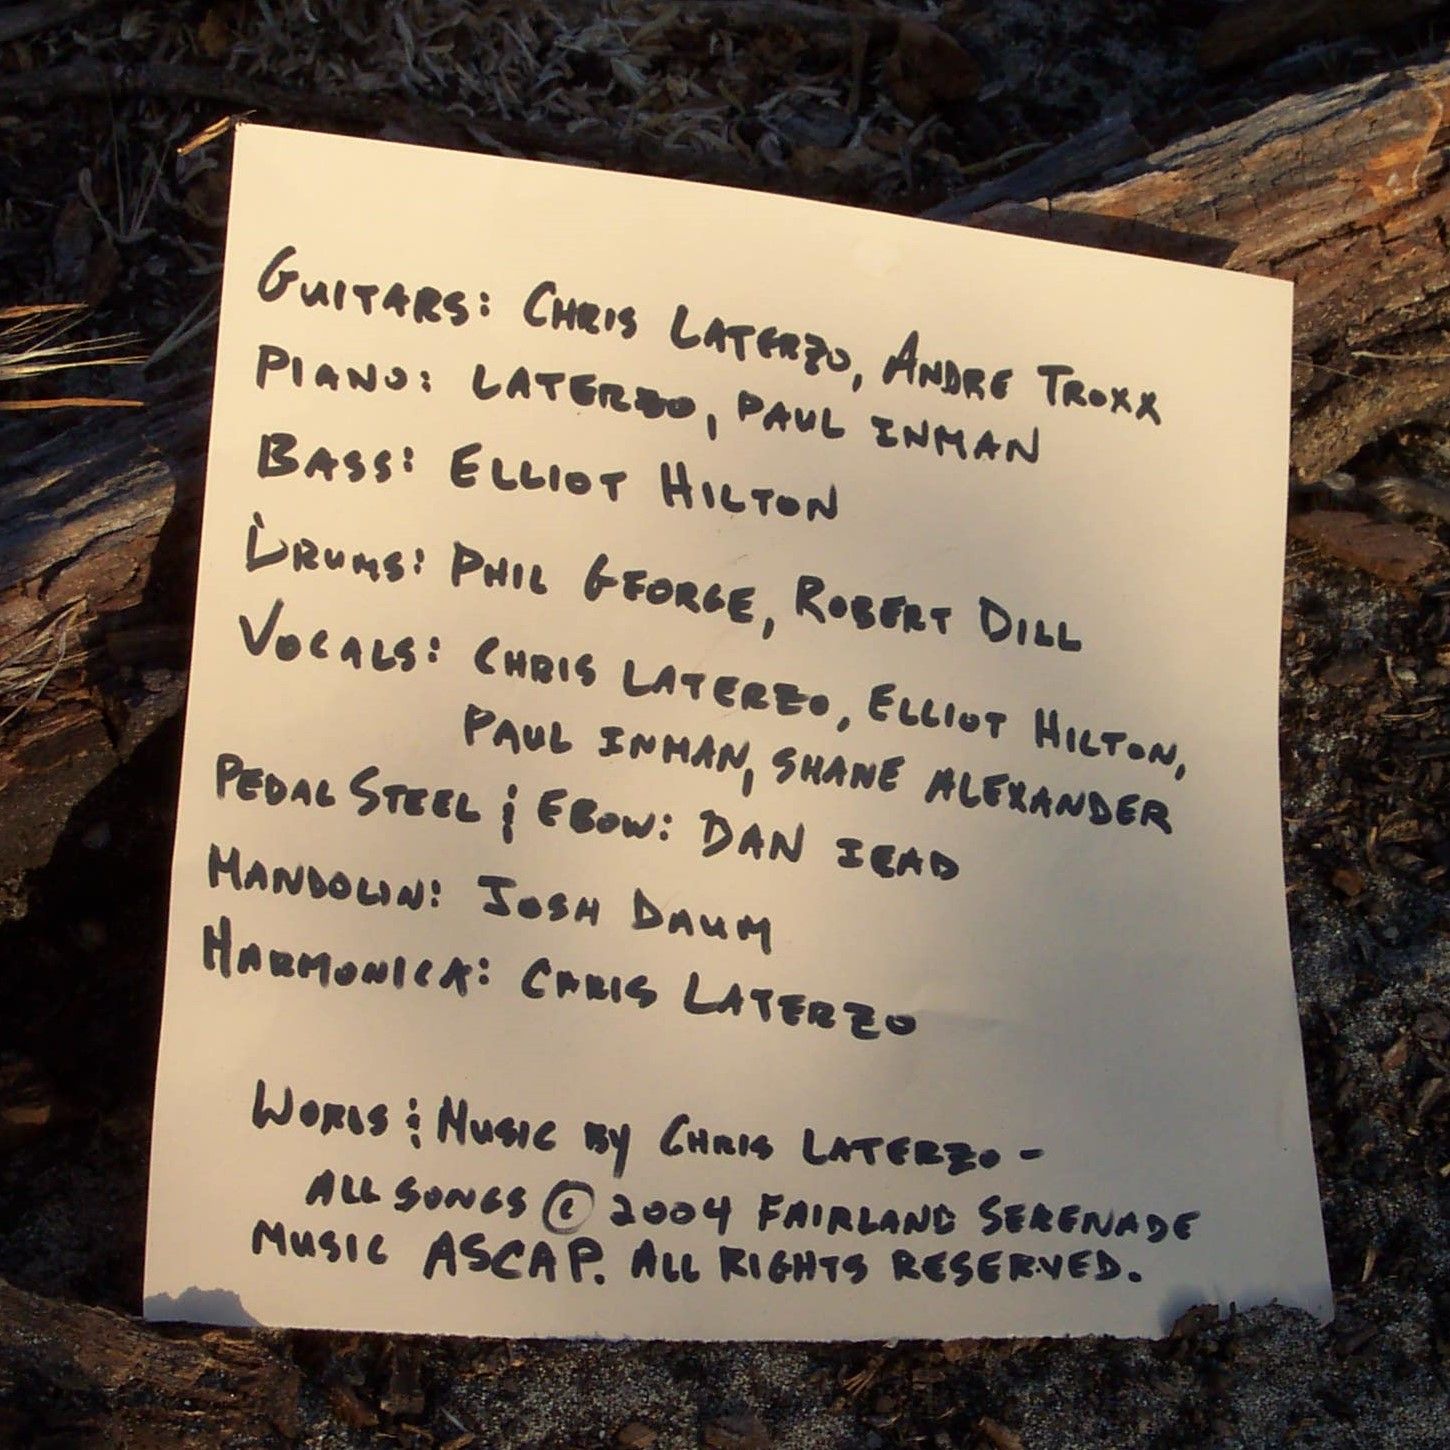 GUITARS: CHRIS LATERZO, ANDRE TROXX
PIANO: LATERZO, PAUL INMAN
BASS: ELLIOT HILTON
DRUMS: PHIL GEORGE, ROBERT DILL
VOCALS: CHRIS LATERZO, ELLIOT HILTON,
PAUL INMAN, SHANE ALEXANDER
PEDAL STEEL & EBOW: DAN IEAD
MANDOLIN: JOSH DAUM
HARMONICA: CHRIS LATERZO
WORDS & MUSIC BY CHRIS LATERZO -
ALL SONGS © 2004 FAIRLAND SERENADE
MUSIC ASCAP. ALL RIGHTS RESERVED.